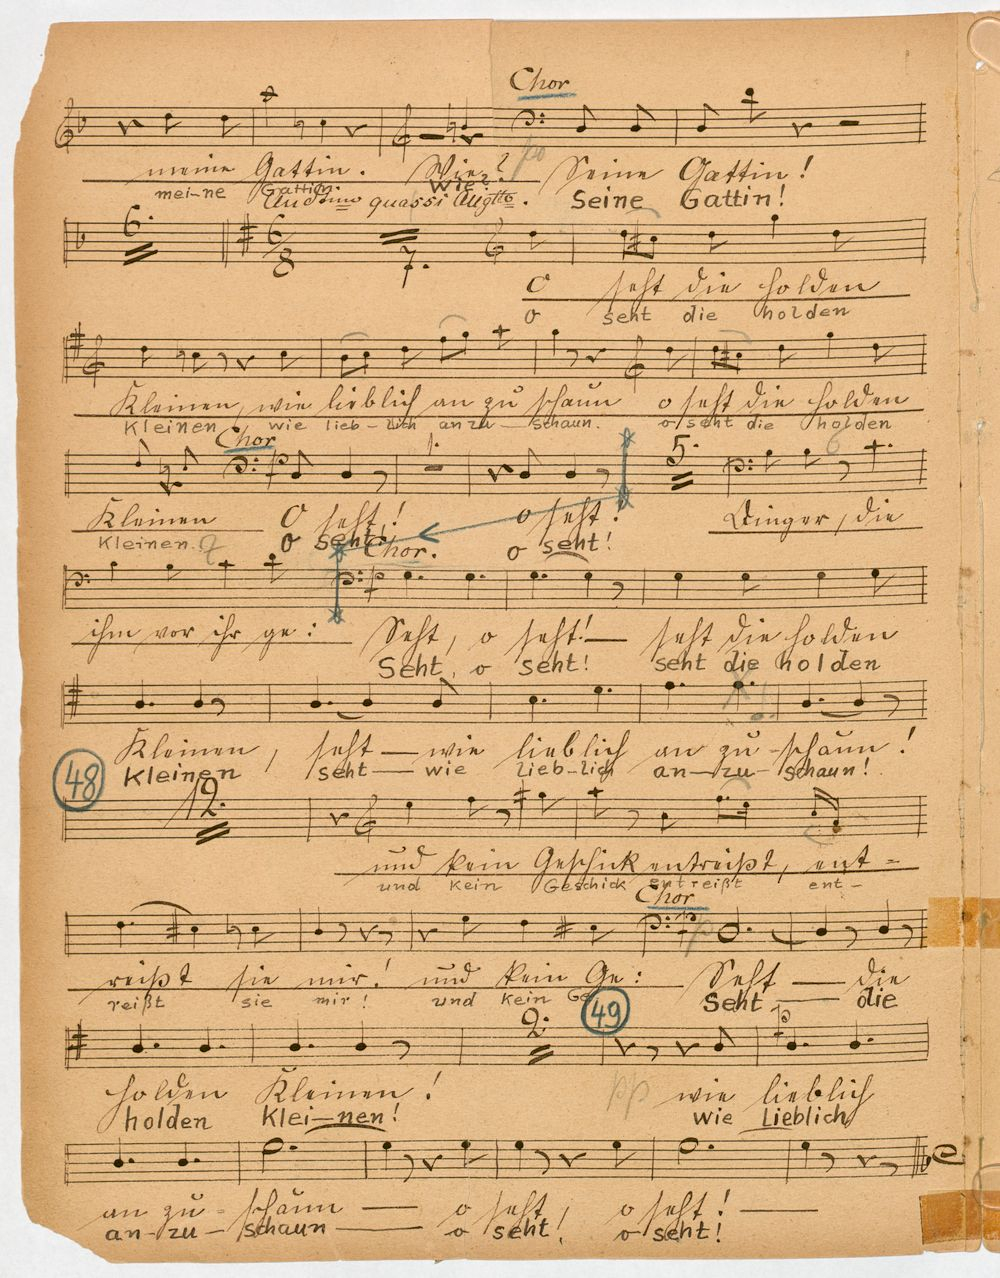 Chor
meine Gattin. Wie? Seine Gattin!
mei-ne Gattin. Wie? Seine Gattin!
And:ino quassi Allgtto.
6. 6/8 7.
O seht die holden
o seht die holden
Kleinen, wie lieblich an zu schaun o seht die holden
Kleinen wie lieb-lich an zu-schaun. o seht die holden
Chor
5.
6
Kleinen O seht! o seht! Dinger, die
Kleinen. O seht! o seht!
Chor.
ihm vor ihr ge: Seht, o seht!— seht die holden
Seht, o seht! seht die holden
Kleinen, seht — wie lieblich an zu-schaun!
Kleinen seht — wie lieb-lich an-zu-schaun!
48
12.
und kein Geschick entreißt, ent-
und kein Geschick entreißt ent-
Chor
p
reißt sie mir! und kein Ge: Seht — die
reißt sie mir! und kein Ge Seht — die
2. 49
holden Kleinen! pp wie lieblich
holden Klei-nen! wie Lieblich
an zu-schaun — o seht, o seht! —
an-zu-schaun — o seht! o seht!